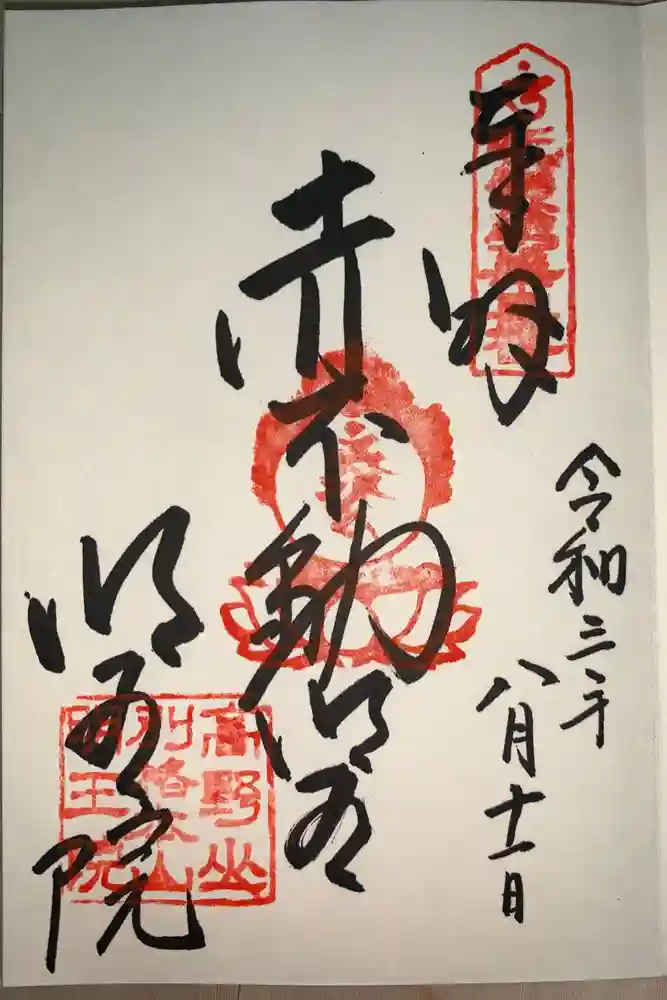 奉拝
令和三年
八月十一日
赤不動明王
明王院
高野山
別格本山
明王院